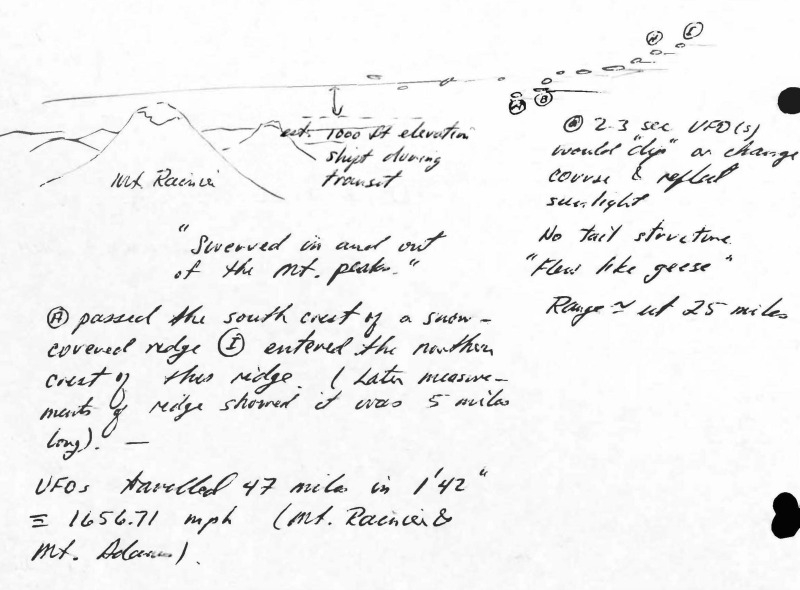 Ⓗ Ⓘ
Ⓑ Ⓐ
est. 1000 ft elevation
shift during
transit
Mt. Rainier
@ 2-3 sec UFO(s)
would "dip" or change
course & reflect
sunlight
No tail structure
"Flew like geese"
Range ≃ est 25 miles
"Swerved in and out
of the mt. peaks."
Ⓐ passed the south crest of a snow-
covered ridge Ⓘ entered the northern
crest of this ridge. (Later measure-
ments of ridge showed it was 5 miles
long). —
UFOs travelled 47 miles in 1'42"
≡ 1656.71 mph (Mt. Rainier &
Mt. Adams).